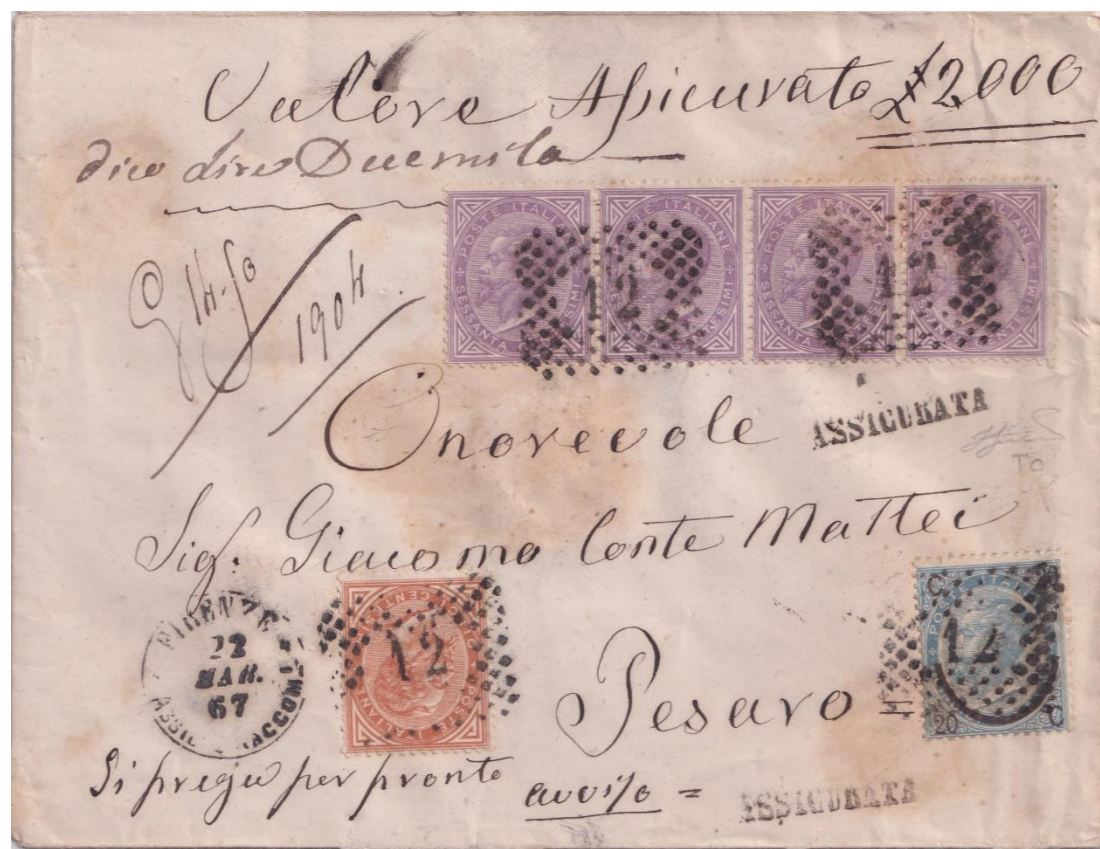 Valore Assicurato £2000
dico lire Duemila
POSTE ITALIANE SESSANTA CENTESIMI
POSTE ITALIANE SESSANTA CENTESIMI
POSTE ITALIANE SESSANTA CENTESIMI
POSTE ITALIANE SESSANTA CENTESIMI
12
12
1904
Onorevole
ASSICURATA
TO
Sig. Giacomo Conte Mattei
FIRENZE
22
MAR.
67
12
Pesaro
C
POSTE ITALIANE
12
20
C
Si prega per pronto
avviso =
ASSICURATA